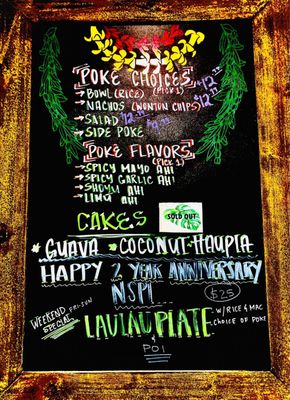 POKE CHOICES
BOWL (RICE) (PICK 1) $12.99
NACHOS (WONTON CHIPS) $12
SALAD $12
SIDE POKE
POKE FLAVORS
(PICK 1)
SPICY MAYO AHI
SPICY GARLIC AHI
SHOYU AHI
LIMU AHI
CAKES SOLD OUT
* GUAVA * COCONUT-HAUPIA
HAPPY 2 YEAR ANNIVERSARY
NSPI
$25
WEEKEND FRI-SUN
SPECIAL
LAULAU PLATE - W/RICE & MAC
CHOICE OF POKE
&
POI